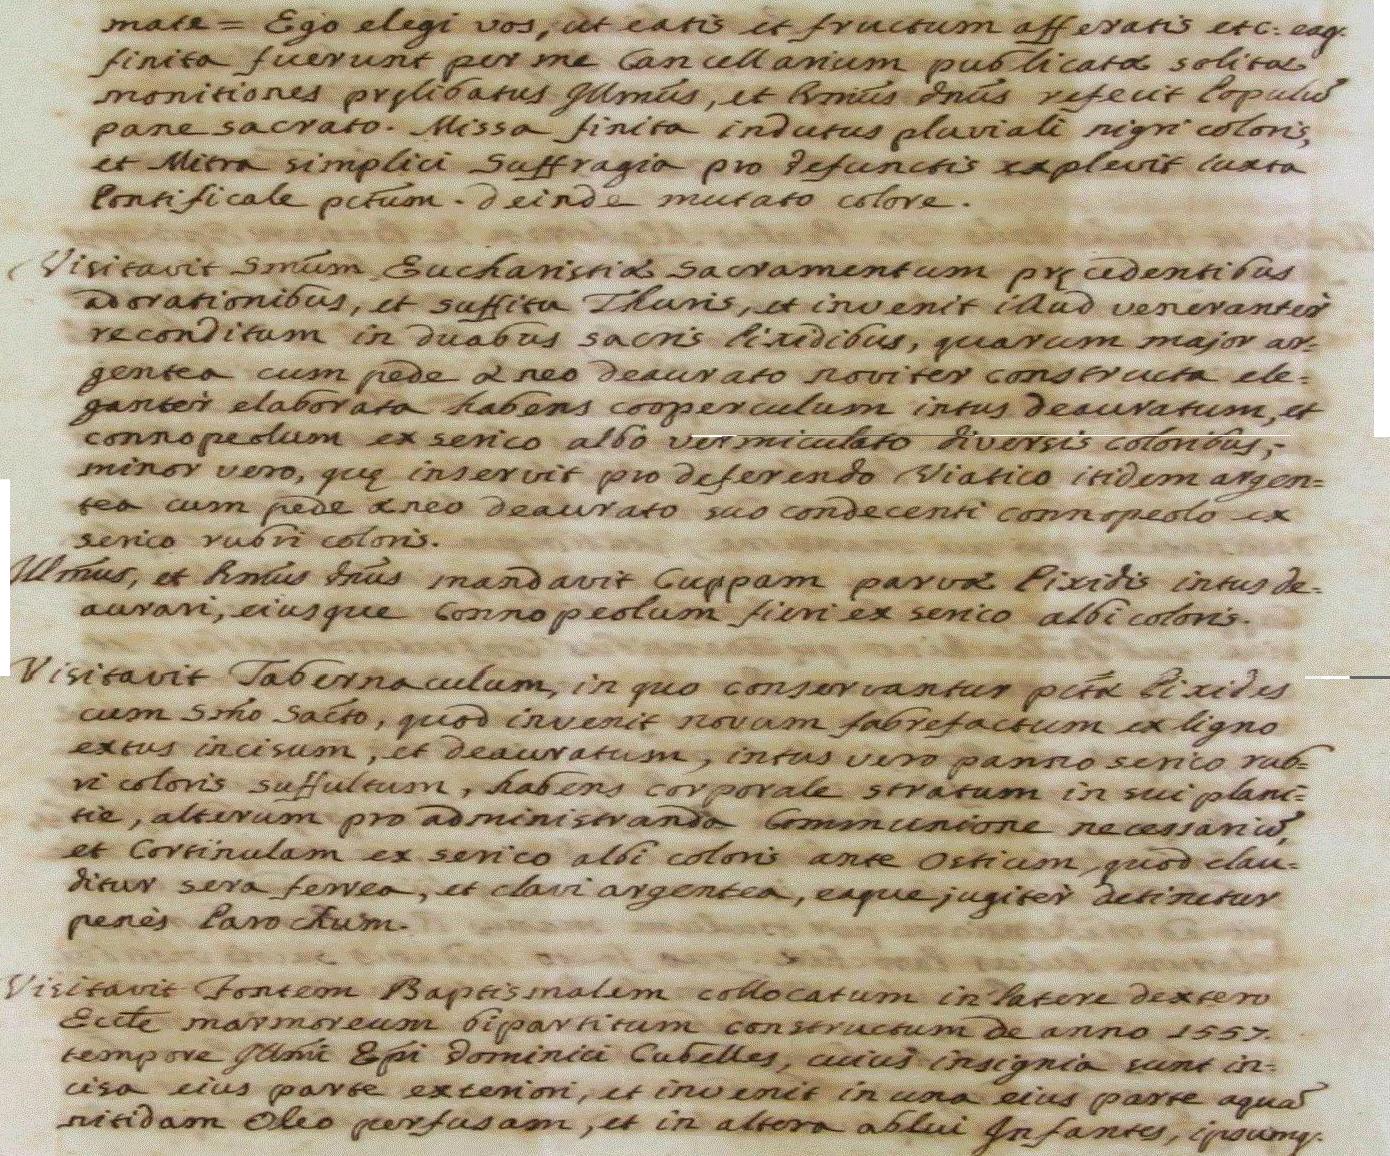 mate = Ego elegi vos, ut eatis et fructum afferatis etc. eaq.
finita fuerunt per me Cancellarium publicatæ solitæ
monitiones pręlibatus Illmũs, et Rmũs Dnũs refecit Populũ
pane sacrato. Missa finita indutus pluviali nigri coloris,
et Mitra simplici Suffragia pro defunctis explevit iuxta
Pontificale pctum̃. Deinde mutato colore.
Visitavit Smũm Eucharistiæ Sacramentum pręcedentibus
adorationibus, et suffitu Thuris, et invenit illud veneranter
reconditum in duabus sacris Pixidibus, quarum major ar=
gentea cum pede æneo deaurato noviter constructa ele=
ganter elaborata habens cooperculum intus deauratum, et
connopeolum ex serico albo vermiculato diversis coloribus;
minor vero, quę inservit pro deferendo Viatico itidem argen=
tea cum pede æneo deaurato suo condecenti connopeolo ex
serico rubri coloris.
Illmũs, et Rmũs Dnũs mandavit Cuppam parvæ Pixidis intus de=
aurari, eiusque Connopeolum fieri ex serico albi coloris.
Visitavit Tabernaculum, in quo conservantur pctæ̃ Pixides
cum Smõ Sacto, quod invenit novam fabrefactum ex ligno
extus incisum, et deauratum, intus vero panno serico rub=
ri coloris suffultum, habens corporale stratum in sui plani=
tie, alterum pro administranda Communione necessariũ,
et Cortinulam ex serico albi coloris ante Ostium, quod clau=
ditur sera ferrea, et clavi argentea, eaque jugiter detinetur
penès Parochum.
Visitavit Fontem Baptismalem collocatum in latere dextero
Eccl̃e marmoreum bipartitum constructum de anno 1557.
tempore Illmĩ Epĩ Dominici Cubelles, cuius insignia sunt in=
cisa eius parte exteriori, et invenit in una eius parte aquã
nitidam Oleo perfusam, et in altera ablui Infantes, ipsumq.